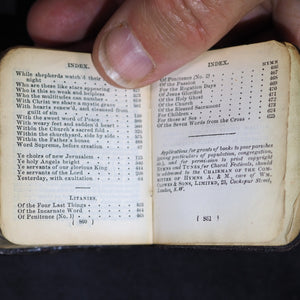 INDEX.
While shepherds watch'd their
night
Who are these like stars appearing
Who is this so weak and helpless
Who the multitudes can number
With Christ we share a mystic grave
With hearts renew'd, and cleansed
of sin
With the sweet word of Peace
With weary feet and sadden'd heart
Within the Church's sacred fold
Within the churchyard, side by side
Within the Father's house
Word Supreme, before creation
Ye choirs of new Jerusalem
Ye holy Angels bright
Ye servants of our glorious King
Ye servants of the Lord
Yesterday, with exultation
LITANIES.
Of the Four Last Things
Of the Incarnate Word
Of Penitence (No. 1)
( 860 )
INDEX.
HYMN
Of Penitence (No. 2)
Of the Passion
For the Rogation Days
Of Jesus Glorified
Of the Holy Ghost
Of the Church
Of the Blessed Sacrament
For Children
For those at Sea
Of the Seven Words from the Cross
Applications for grants of books to poor parishes
giving particulars of population, congregation,
&c., and for permission to print copyright
HYMNS and TUNES for Choral Festivals, should
be addressed to the CHAIRMAN OF THE COM-
MITTEE OF HYMNS A. & M., care of WM.
CLOWES & SONS, LIMITED, 23, Cockspur Street,
London, S.W.
( 861 )